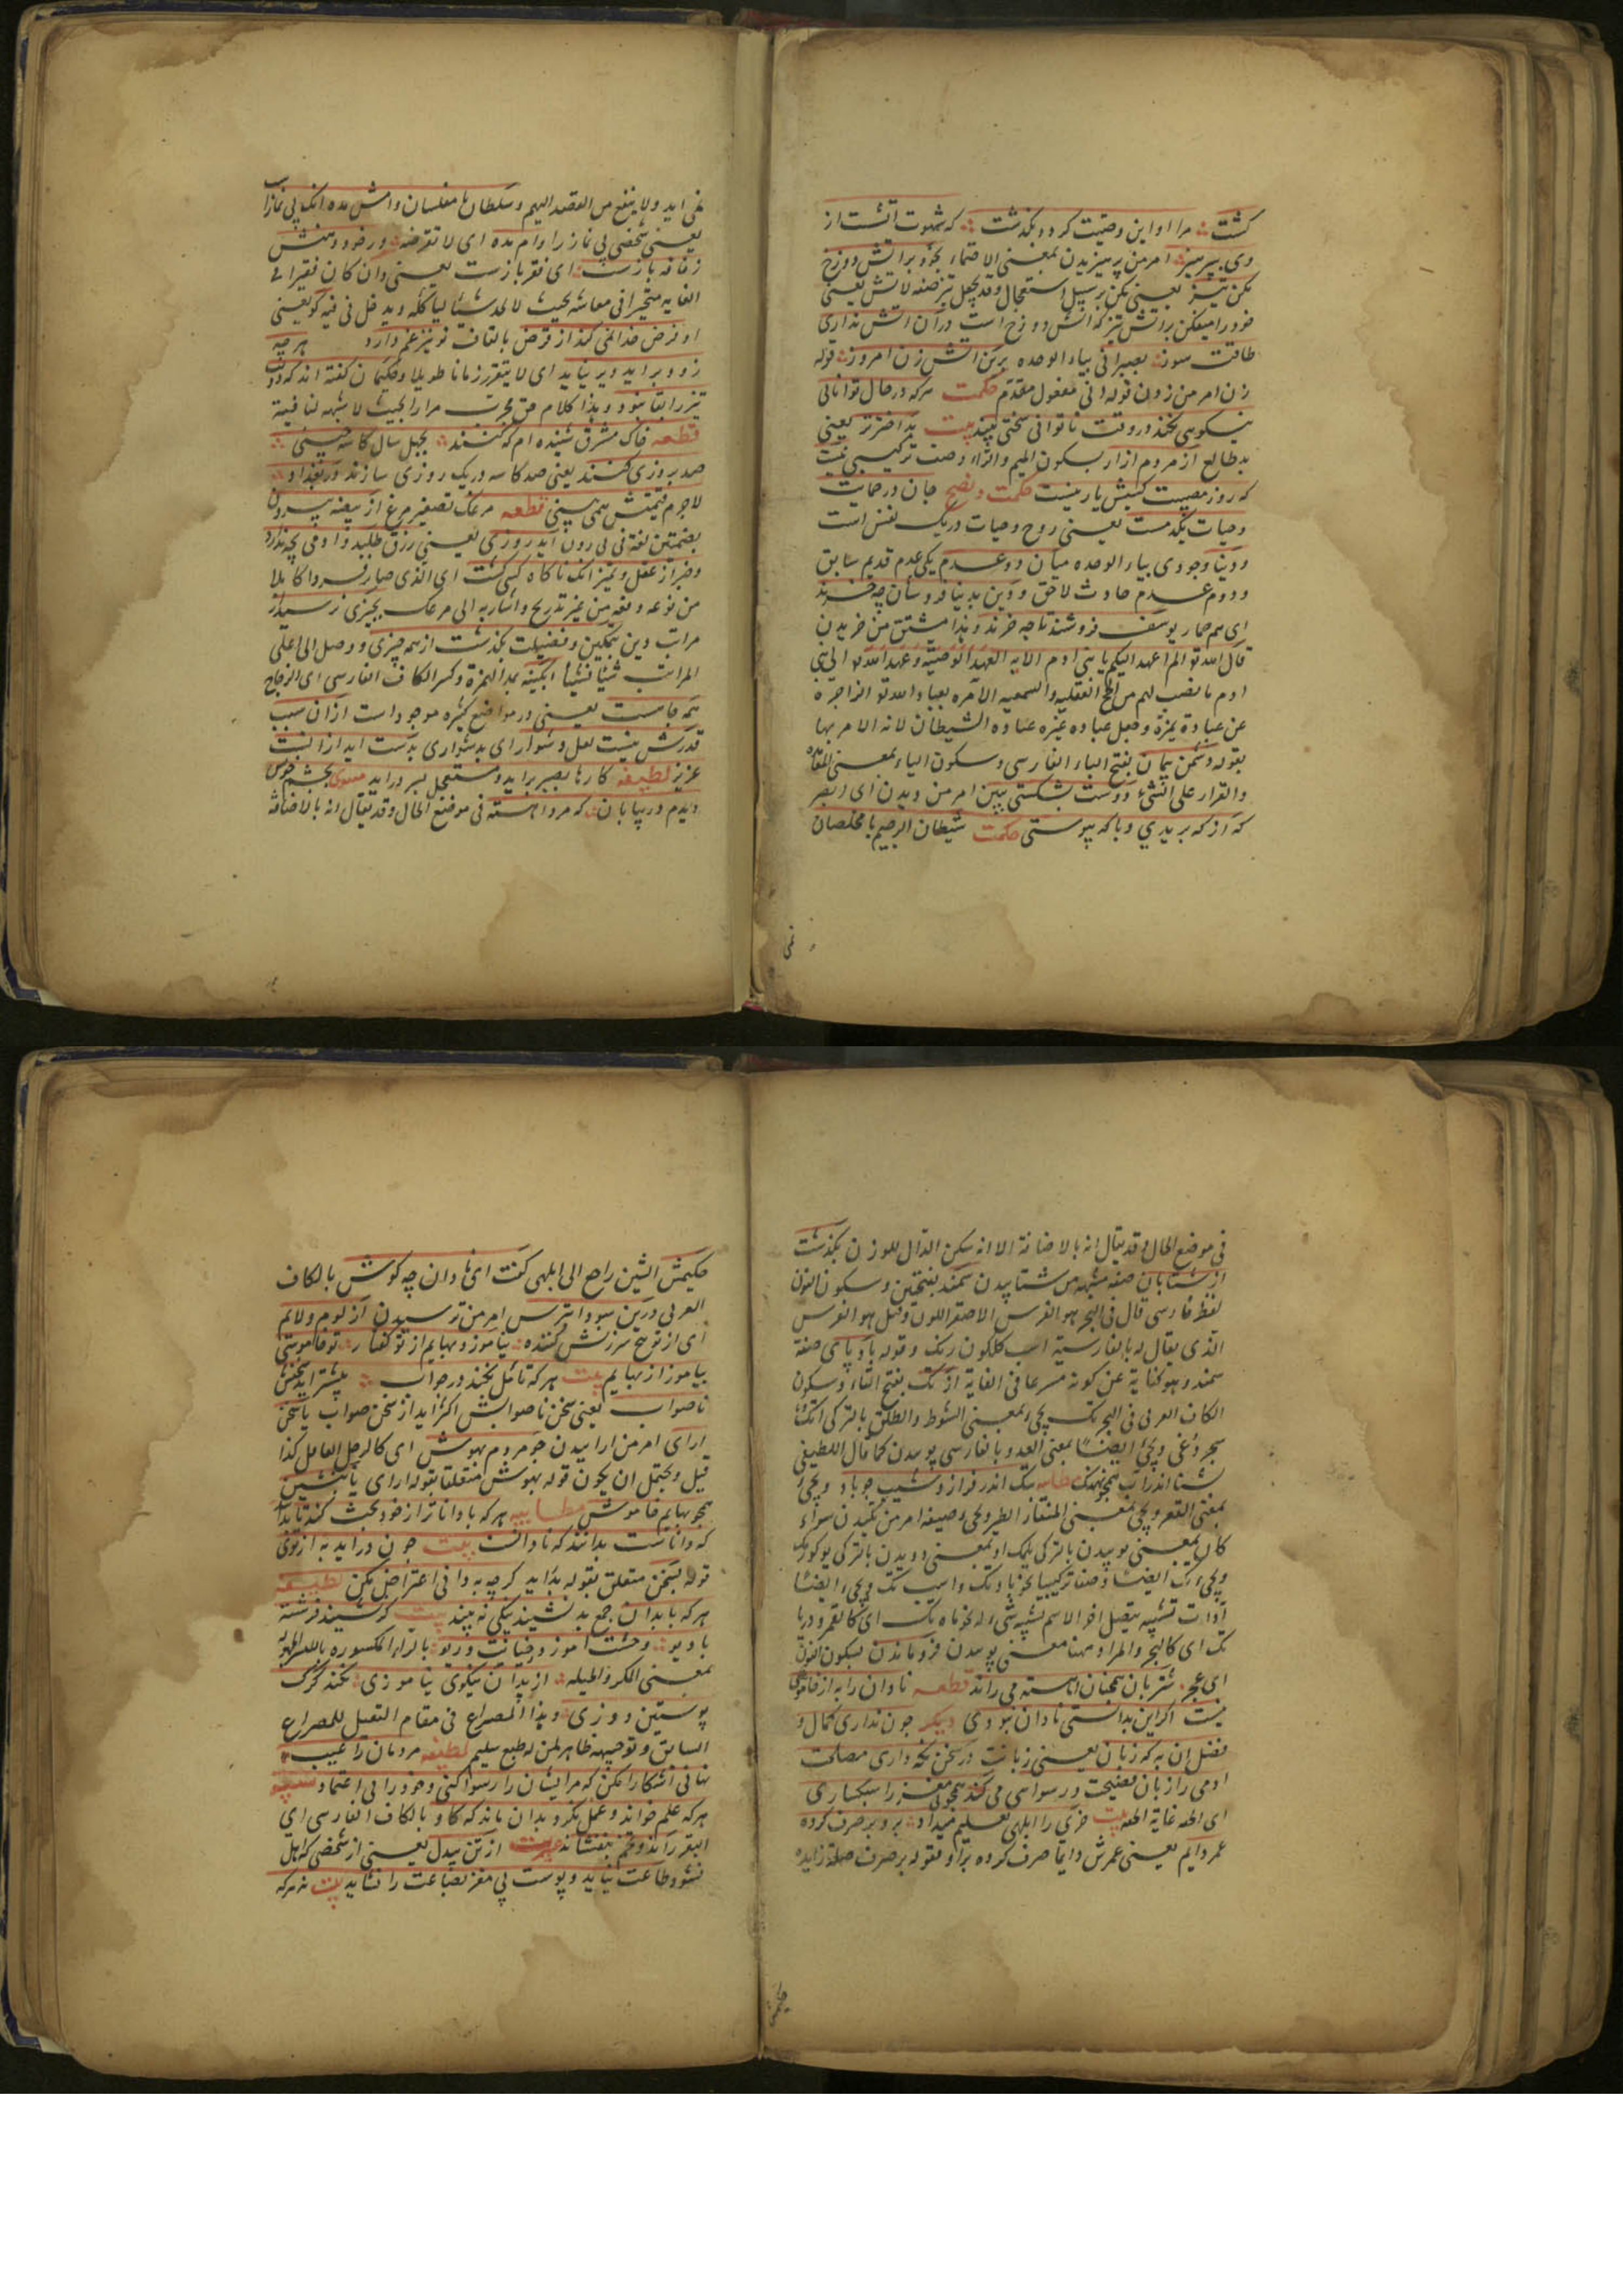 كشت مرا او این وصیت كرد و بكذشت كه شهوت آتشست از
وی بپرهیز امر من پرهیزیدن بمعنی الاحتماء بخود بر آتش دوزخ
مكن تیز یعنی مكن بر سبیل استعجال وقد یجعل تیز صفة لآتش یعنی
خود را میفكن بر آتش تیز كه آتش دوزخ است در آن آتش نداری
طاقت سوز بصبر آبی بیاء الوحده برین آتش زن امروز قوله
زن امر من زدن قوله آبی مفعول مقدم حكمت هركه در حال توانایی
نیكویی نكند در وقت ناتوانی سختی بیند بیت بد اختر تر یعنی
بد طالع از مردم آزار بسكون المیم والزاء وصف تركیبی نیست
كه روز مصیبت كسش یار نیست حكمت و نصح جان در حمایت
وحیات یكدمست یعنی روح وحیات در یك نفس است
ودنیا وجودی بیاء الوحده میان دو عدم یكی عدم قدیم سابق
ودوم عدم حادث لاحق ودین بدنیا فروشان چه خرند
ای هم حمار یوسف فروشند تا چه خرند وهذا مشتق من خریدن
قال الله تع الم اعهد الیكم یا بنی آدم الایه العهد الوصیه وعهد الله تع الی بنی
آدم ما نصب لهم من الحج العقلیه والسمعیه الآمره بعبادة الله تع الزاجره
عن عبادة غیره وجعل عباده غیره عباده الشیطان لانه الآمر بها
بقوله دشمن پیمان بفتح الباء الفارسی وسكون الیاء بمعنی المعاهده
والقرار علی الشیء دوست بشكستی ببین امر من دیدن ای ابصر
كه از كه بریدی وبا كه پیوستی حكمت شیطان الرجیم با مخلصان
نمی
نمی آید ولا ینفع من القصد الیهم وسلطان با مفلسان وامش مده آنك بی نمازست
یعنی شخصی بی نماز را وام مده ای لا تقرضه ور خود دهنش
ز فاقه باز ست ای فقر بازست یعنی وان كان فقیرا فی
الغایه متحیرا فی معاشه بحیث لا یجد شیئا لیأكله ویدخل فی فیه كو یعنی
او فرض خدا نمی كند از قرض بالقاف تو نیز غم دارد هر چه
زود بر آید دیر نپاید ای لا یتقرر زمانا طویلا وحكیمان كفته اند كه دولت
تیز را بقا نبود وهذا كلام حق مجرب مرارا بحیث لا شبهه لنا فیه
قطعه خاك مشرق شنیده ام كه كنند بچهل سال كاسه چینی
صد بروزی كنند یعنی صد كاسه در یك روزی سازند در بغداد
لاجرم قیمتش همی بینی قطعه مرغك تصغیر مرغ از بیضه بیرون
بضمتین لغة فی برون آید روزی یعنی رزق طلبد وآدمی بچه ندارد
وخبر از عقل وتمیز آنك ناكاه كسی كشت ای الذی صار فردا كاملا
من نوعه دفعة من غیر تدریج واشار به الی مرغك بچیزی نرسید از
مراتب وین بتمكین وفضیلت بكذشت از همه چیزی ووصل الی اعلی
المراتب شیئا فشیئا آبكینه بمد الهمزة وكسر الكاف الفارسی ای الزجاج
همه جا ست یعنی در مواضع كثیره موجود است از آن سبب
قدرش نیست لعل دشوار ای بدشواری بدست آید از آنست
عزیز لطیفه كارها بصبر بر آید ومستعجل بسر در آید مثنوی بچشم خویش
دیدم در بیابان كه مرد آهسته فی موضع الحال وقد یقال انه بالاضافه
فی موضع الحال وقد یقال انه بالاضافة الا انه سكن الدال للوزن بكذشت
از شتابان صفة مشبهه من شتابیدن سمند بفتحتین وسكون النون
لفظ فارسی قال فی البحر هو الفرس الاصفر اللون وقیل هو الفرس
الذی یقال له بالفارسیة اسب كلكون رنك وقوله باد پای صفة
سمند وهو كنایة عن كونه مسرعا فی الغایة از تك بفتح التاء وسكون
الكاف العربی فی البحر تك یجیء بمعنی الشوط والطلق بالتركی
ویجیء ایضا بمعنی العدو وبالفارسی پوییدن كما قال اللطیفی
تك اندر فراز ونشیب چو باد ویجیء
بمعنی القعر ویجیء بمعنی المنقار الطیر ویجیء وصیغه امر من تكیدن سواء
كان بمعنی پوییدن بالتركی یلمك او بمعنی دویدن بالتركی
ویجیء تك ایضا وصفا تركیبیا نحو باد تك واسب تك ویجیء ایضا
ادات تشبیه یتصل آخر الاسم لتشبیه شیء له نحو ماه تك ای كالقمر ودریا
تك ای كالبحر والمراد ههنا معنی پوییدن فرو ماندن بسكون النون
ای عجز شتربان همچنان آهسته می راند قطعه نادان را به از خاموشی
نیست اكر این بدانستی نادان نبودی دیكر چون نداری كمال و
فضل آن به كه زبان یعنی زبانت در سخن نكه داری مصلحت
آدمی را زبان فضیحت ورسوایی می كند همچو بی مغز را سبكساری
ای الخفة غایة الخفة بیت خری را ابلهی تعلیم میداد برو بر صرف كرده
عمر دایم یعنی عمرش دایما صرف كرده برو وقوله بر صرف صلة زایده
حكیمش
حكیمش الشین راجع الی ابلهی كفت ای نادان چه كوشی بالكاف
العربی درین سودا بترس امر من ترسیدن از لوم ولائم
ای از توبیخ سرزنش كننده نیاموزد بهایم از تو كفتار تو خاموشی
بیاموز از بهایم بیت هر كه تأمل نكند در جواب بیشتر آید سخنش
ناصواب یعنی سخن ناصوابش اكثر آید از سخن صواب یا سخن
آرای امر من آراییدن چو مردم بهوش ای كالرجل العاقل كذا
قیل ویحتمل ان یكون قوله بهوش متعلقا بقوله آرای یا بنشین
همچو بهایم خاموش مطایبه هر كه با داناتر از خود بحث كند تا بدانند
كه داناست بدانند كه نادانست بیت چون در آید به از تویی
قوله بسخن متعلق بقوله بدآید كرچه به دانی اعتراض مكن لطیفه
هر كه با بدان جمع بدنشیند نیكی نه بیند بیت كر نشیند فرشته
با دیو وحشت آموزد وخیانت وریو بالراء المكسوره بالمد المهموله
بمعنی المكر والحیله از بدان نیكوی نیاموزی نكند كرك
پوستین دوزی وهذا المصراع فی مقام التعلیل للمصراع
السابق وتوجیهه ظاهر لمن له طبع سلیم لطیفه مردمان را عیب
نهانی آشكارا مكن كه مر ایشان را رسوا كنی وخود را بی اعتماد
هر كه علم خواند وعمل نكرد بدان ماند كه كاو بالكاف الفارسی ای
البقر راند وتخم نیفشاند حكمت از تن بیدل یعنی از شخصی كه اهل
نشود طاعت نیاید وپوست بی مغز بضاعت را نشاید بیت نه هر كه